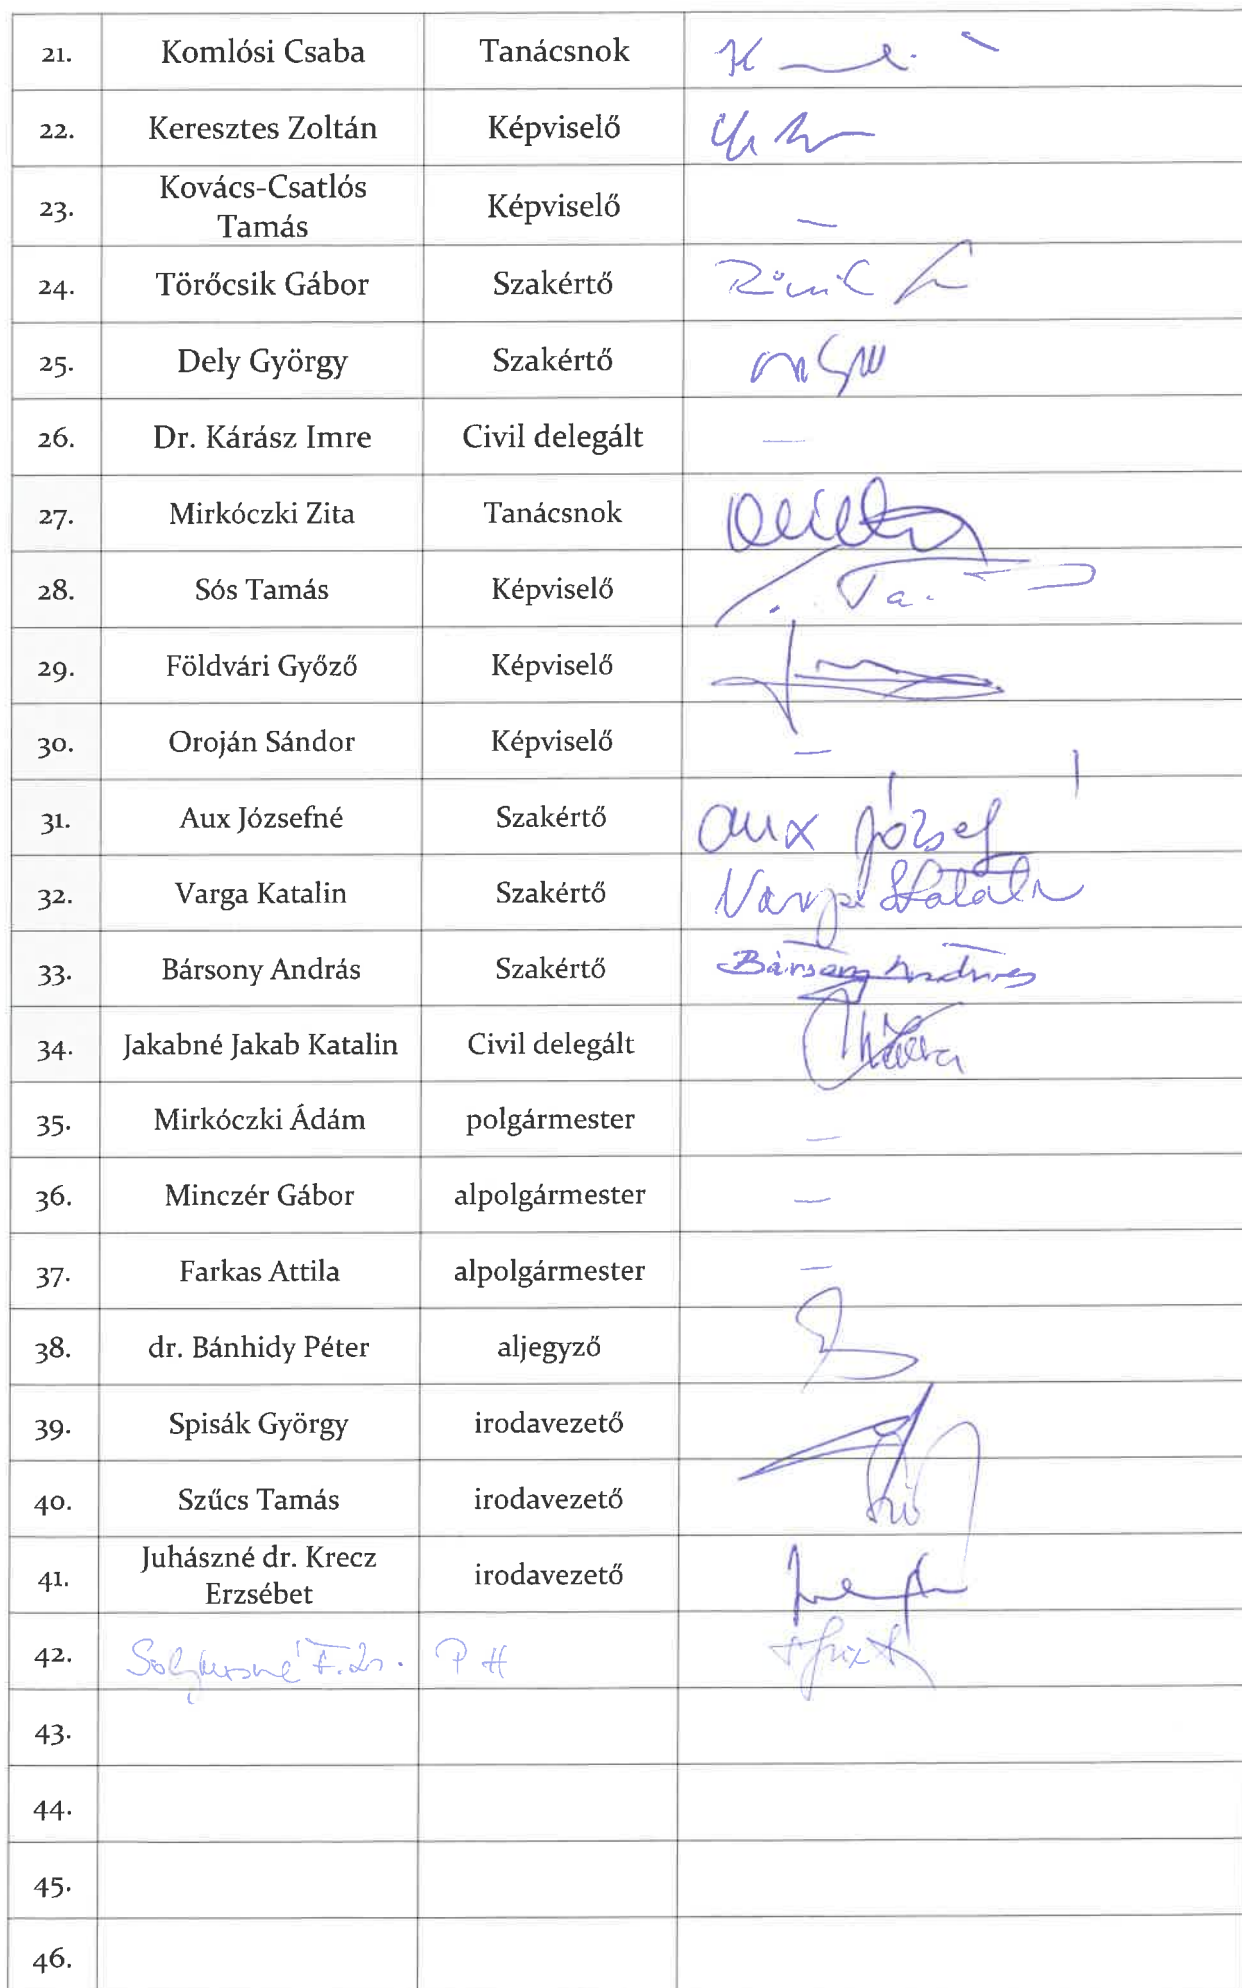 21. Komlósi Csaba Tanácsnok
22. Keresztes Zoltán Képviselő
23. Kovács-Csatlós Tamás Képviselő –
24. Törőcsik Gábor Szakértő
25. Dely György Szakértő
26. Dr. Kárász Imre Civil delegált –
27. Mirkóczki Zita Tanácsnok
28. Sós Tamás Képviselő
29. Földvári Győző Képviselő
30. Oroján Sándor Képviselő –
31. Aux Józsefné Szakértő Aux József
32. Varga Katalin Szakértő Varga Katalin
33. Bársony András Szakértő Bársony András
34. Jakabné Jakab Katalin Civil delegált
35. Mirkóczki Ádám polgármester –
36. Minczér Gábor alpolgármester –
37. Farkas Attila alpolgármester –
38. dr. Bánhidy Péter aljegyző
39. Spisák György irodavezető
40. Szűcs Tamás irodavezető
41. Juhászné dr. Krecz Erzsébet irodavezető
42. PH
43.
44.
45.
46.